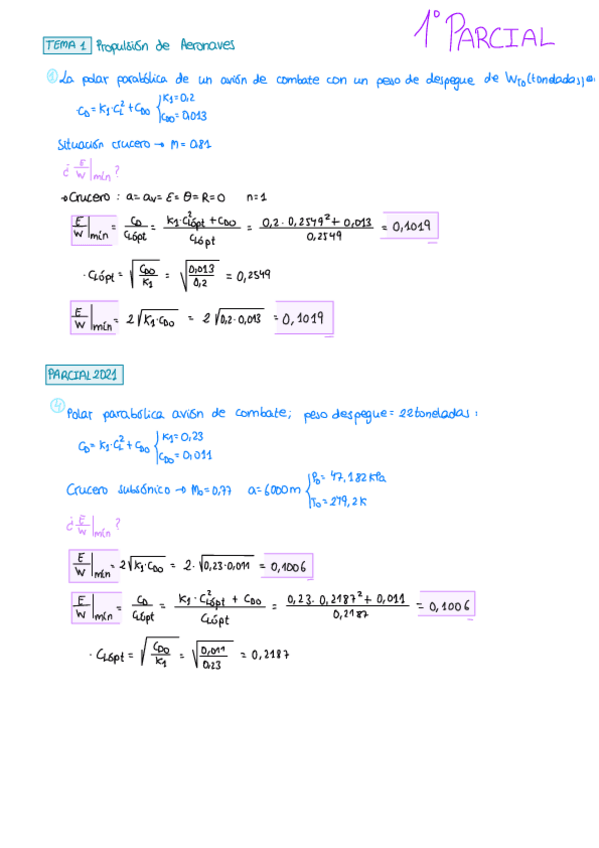 1º PARCIAL
TEMA 1 Propulsión de Aeronaves
① La polar parabólica de un avión de combate con un peso de despegue de WTO (toneladas) es
CD = K1·CL² + CD0 { K1=0,2
CD0=0,013
Situación crucero → M=0.81
¿ E/W|mín ?
→ Crucero : a = av = E = θ = R = 0 n=1
E/W|mín = CD/CLópt = K1·CLópt² + CD0 / CLópt = 0,2·0,2549² + 0,013 / 0,2549 = 0,1019
· CLópt = √(CD0/K1) = √(0,013/0,2) = 0,2549
E/W|mín = 2√(K1·CD0) = 2√(0,2·0,013) = 0,1019
PARCIAL 2021
④ Polar parabólica avión de combate; peso despegue = 22 toneladas :
CD = K1·CL² + CD0 { K1=0,23
CD0=0,011
Crucero subsónico → M0=0,77 a=6000m { P0= 47,182 kPa
T0=249,2K
¿ E/W|mín ?
E/W|mín = 2√(K1·CD0) = 2·√(0,23·0,011) = 0,1006
E/W|mín = CD/CLópt = K1·CLópt² + CD0 / CLópt = 0,23·0,2187² + 0,011 / 0,2187 = 0,1006
· CLópt = √(CD0/K1) = √(0,011/0.23) = 0,2187